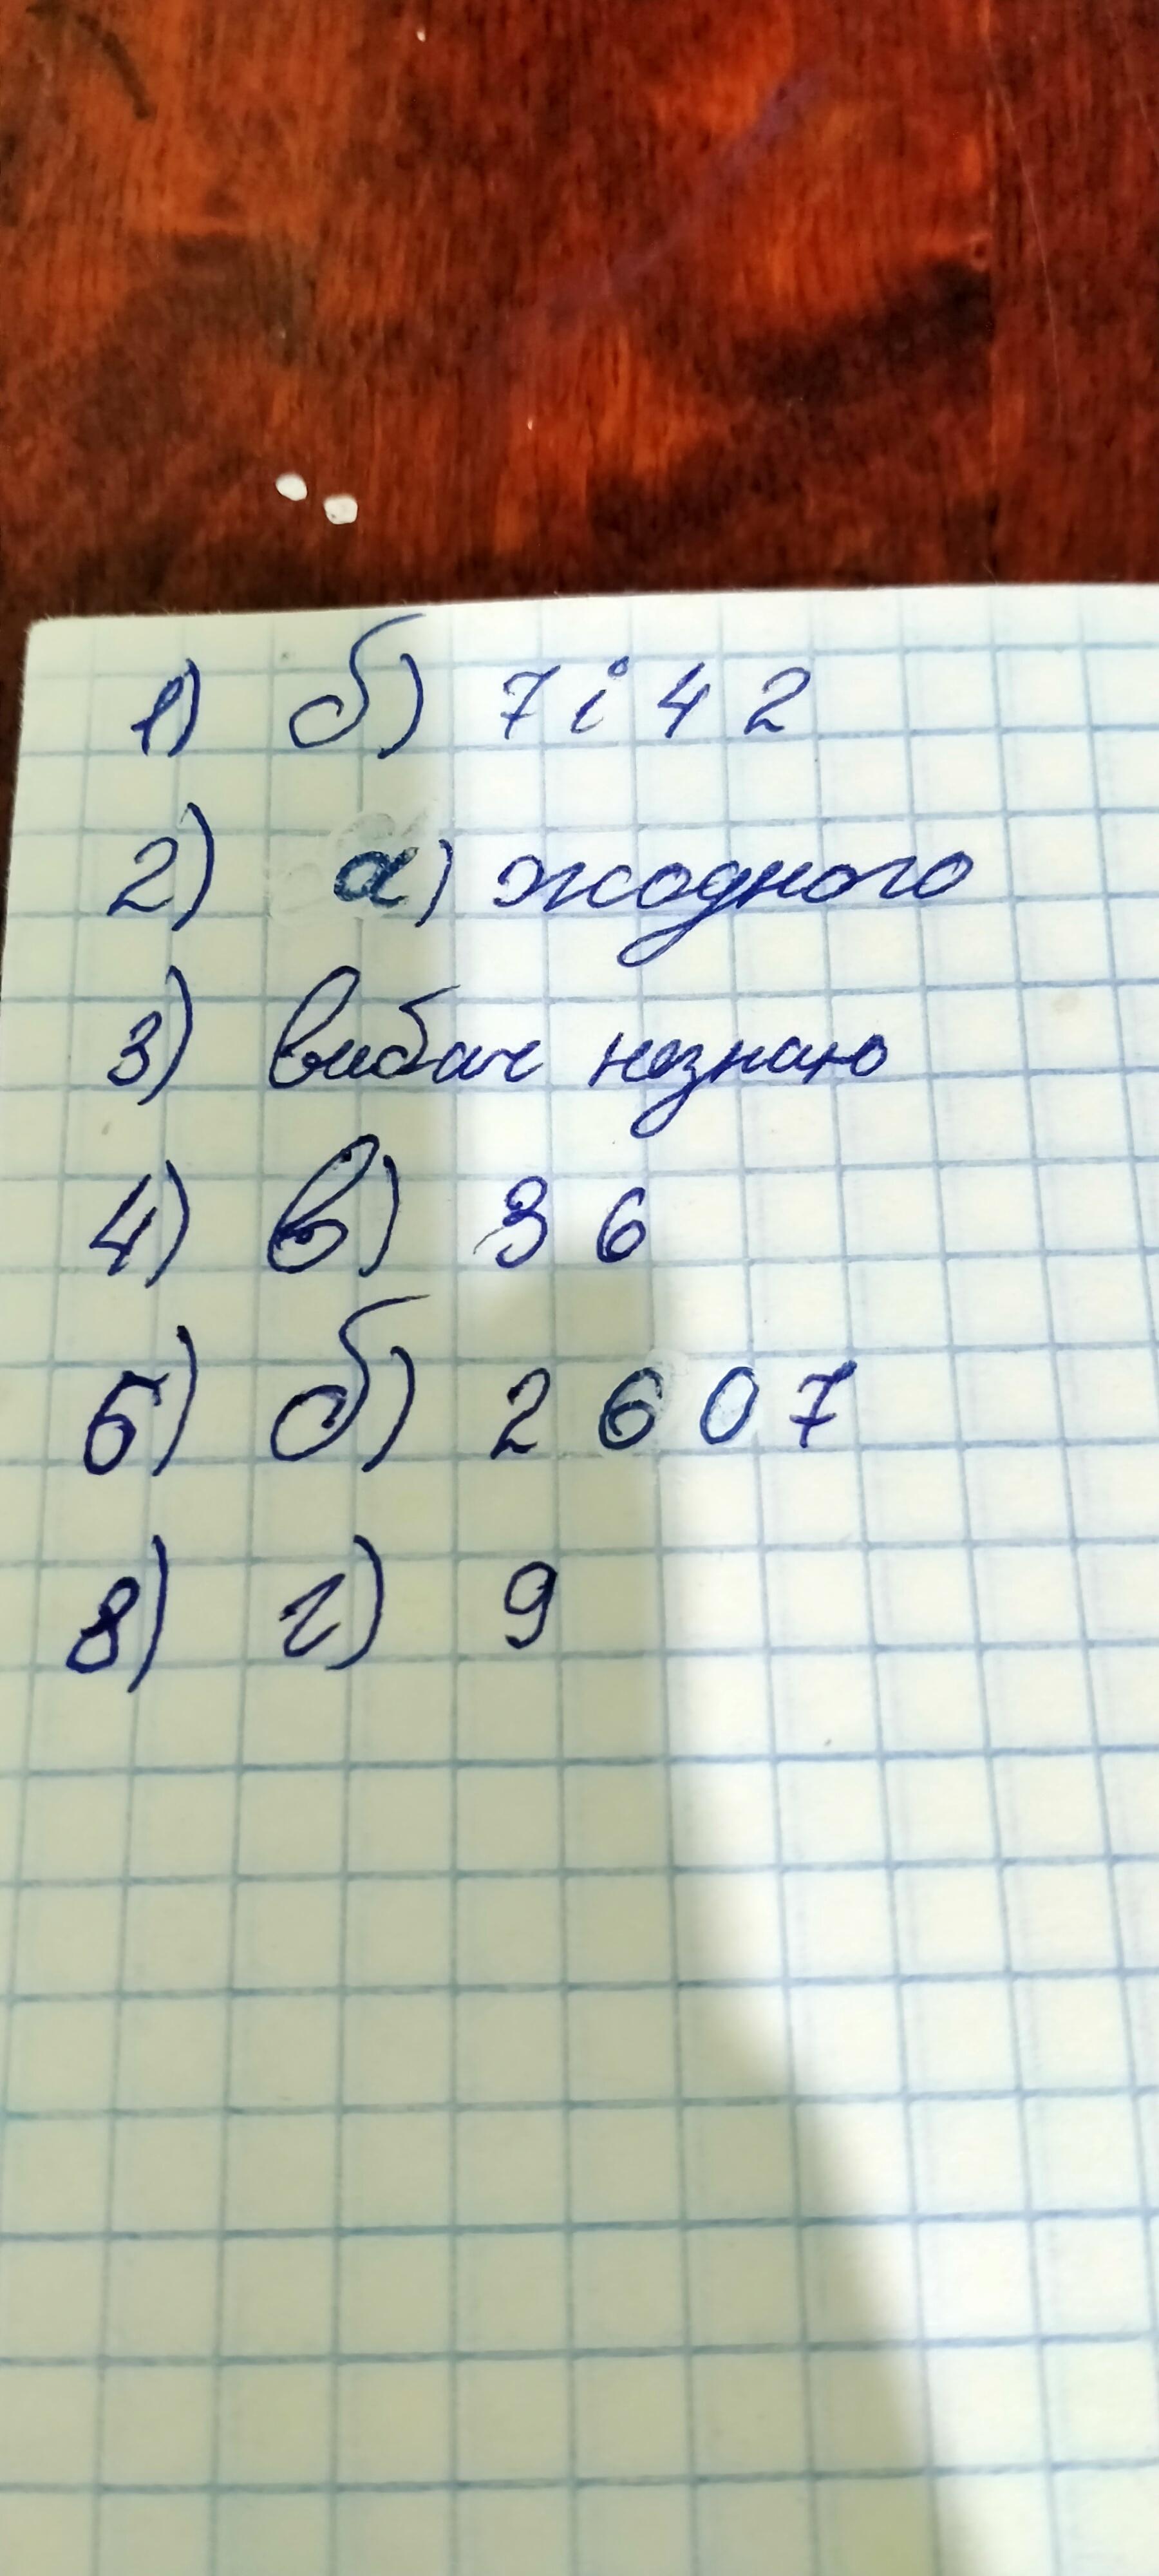 1) б) 7 і 42
2) а) жодного
3) вибач незнаю
4) в) 36
5) б) 2607
8) г) 9